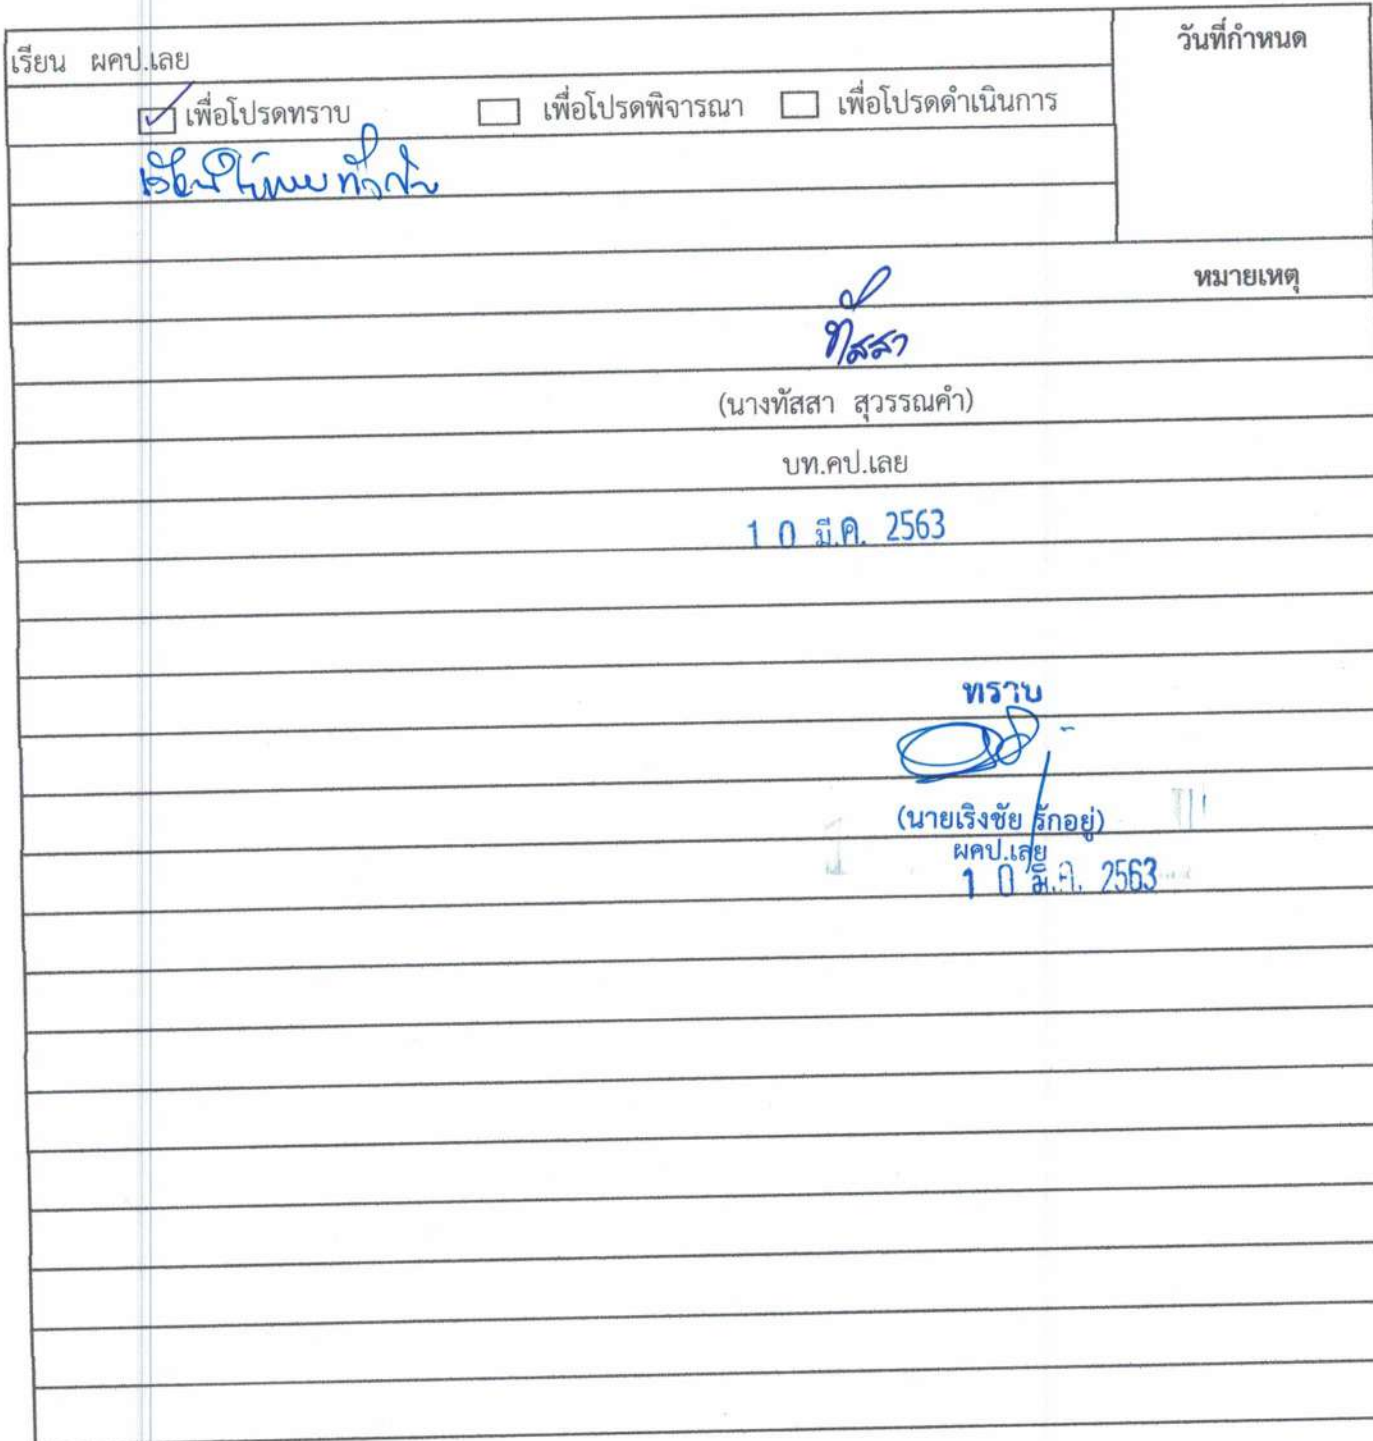 วันที่กำหนด
เรียน ผคป.เลย
เพื่อโปรดทราบ เพื่อโปรดพิจารณา เพื่อโปรดดำเนินการ
หมายเหตุ
ทัสสา
(นางทัสสา สุวรรณคำ)
บท.คป.เลย
10 มี.ค. 2563
ทราบ
(นายเริงชัย รักอยู่)
ผคป.เลย
10 มี.ค. 2563